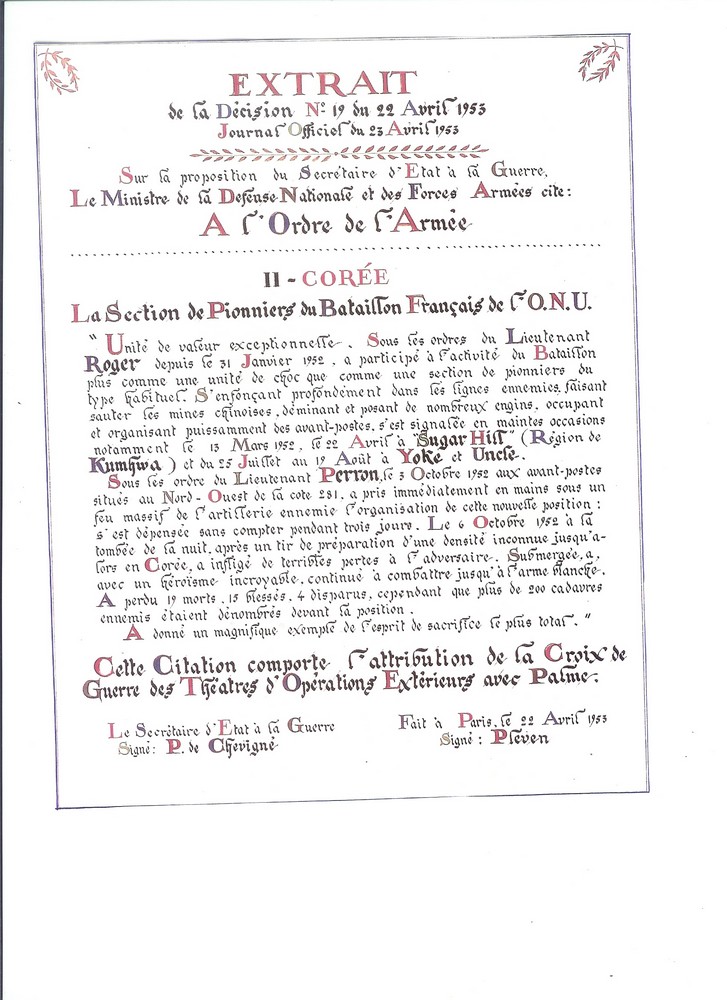 EXTRAIT
de la Décision Nº 19 du 22 Avril 1953
Journal Officiel du 23 Avril 1953
Sur la proposition du Secrétaire d'Etat à la Guerre,
Le Ministre de la Défense Nationale et des Forces Armées cite :
A l'Ordre de l'Armée
II - CORÉE
La Section de Pionniers du Bataillon Français de l'O.N.U.
" Unité de valeur exceptionnelle. Sous les ordres du Lieutenant
Roger depuis le 31 Janvier 1952, a participé à l'activité du Bataillon
plus comme une unité de choc que comme une section de pionniers du
type habituel. S'enfonçant profondément dans les lignes ennemies, faisant
sauter les mines chinoises, déminant et posant de nombreux engins, occupant
et organisant puissamment des avant-postes, s'est signalée en maintes occasions
notamment le 13 Mars 1952, le 22 Avril à "Sugar Hill" (Région de
Kumhwa) et du 25 Juillet au 19 Août à Yoke et Uncle.
Sous les ordre du Lieutenant Perron, le 3 Octobre 1952 aux avant-postes
situés au Nord-Ouest de la cote 281, a pris immédiatement en mains sous un
feu massif de l'artillerie ennemie l'organisation de cette nouvelle position ;
s'est dépensée sans compter pendant trois jours. Le 6 Octobre 1952 à la
tombée de la nuit, après un tir de préparation d'une densité inconnue jusqu'a-
lors en Corée, a infligé de terribles pertes à l'adversaire. Submergée, a,
avec un héroïsme incroyable, continué à combattre jusqu'à l'arme blanche.
A perdu 19 morts, 15 blessés, 4 disparus, cependant que plus de 200 cadavres
ennemis étaient dénombrés devant la position.
A donné un magnifique exemple de l'esprit de sacrifice le plus total. "
Cette Citation comporte l'attribution de la Croix de
Guerre des Théatres d'Opérations Extérieurs avec Palme.
Le Secrétaire d'Etat à la Guerre
Signé : P. de Chevigné
Fait à Paris, le 22 Avril 1953
Signé : Pleven